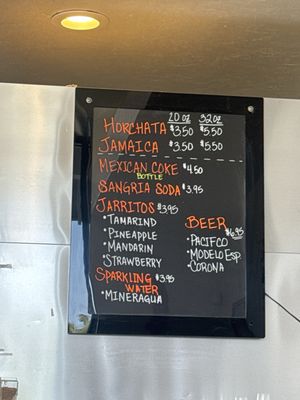 20 oz 32 oz
HORCHATA $3.50 $5.50
JAMAICA $3.50 $5.50
MEXICAN COKE $4.50
BOTTLE
SANGRIA SODA $3.95
JARRITOS $3.95
• TAMARIND
• PINEAPPLE
• MANDARIN
• STRAWBERRY
BEER
$6.95
• PACIFICO
• MODELO ESP.
• CORONA
SPARKLING $3.95
WATER
• MINERAGUA